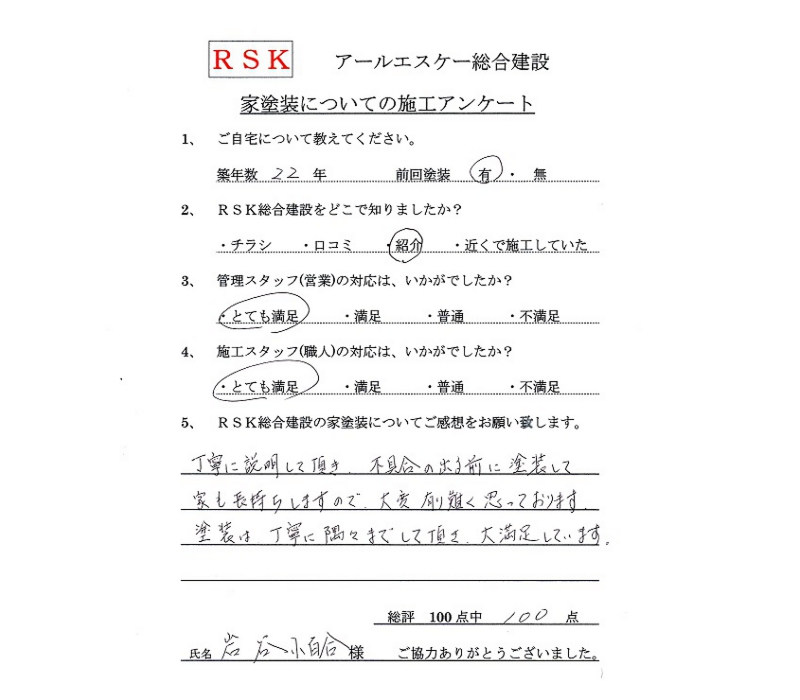 RSK アールエスケー総合建設
家塗装についての施工アンケート
1、 ご自宅について教えてください。
築年数 22 年 前回塗装 有 ・ 無
2、 RSK総合建設をどこで知りましたか?
・チラシ ・口コミ ・紹介 ・近くで施工していた
3、 管理スタッフ(営業)の対応は、いかがでしたか?
・とても満足 ・満足 ・普通 ・不満足
4、 施工スタッフ(職人)の対応は、いかがでしたか?
・とても満足 ・満足 ・普通 ・不満足
5、 RSK総合建設の家塗装についてご感想をお願い致します。
丁寧に説明して頂き、不具合の出る前に塗装して
家も長持ちしますので、大変有難く思っております。
塗装は丁寧に隅々までして頂き、大満足しています。
総評 100点中 100 点
氏名 岩谷小百合 様 ご協力ありがとうございました。